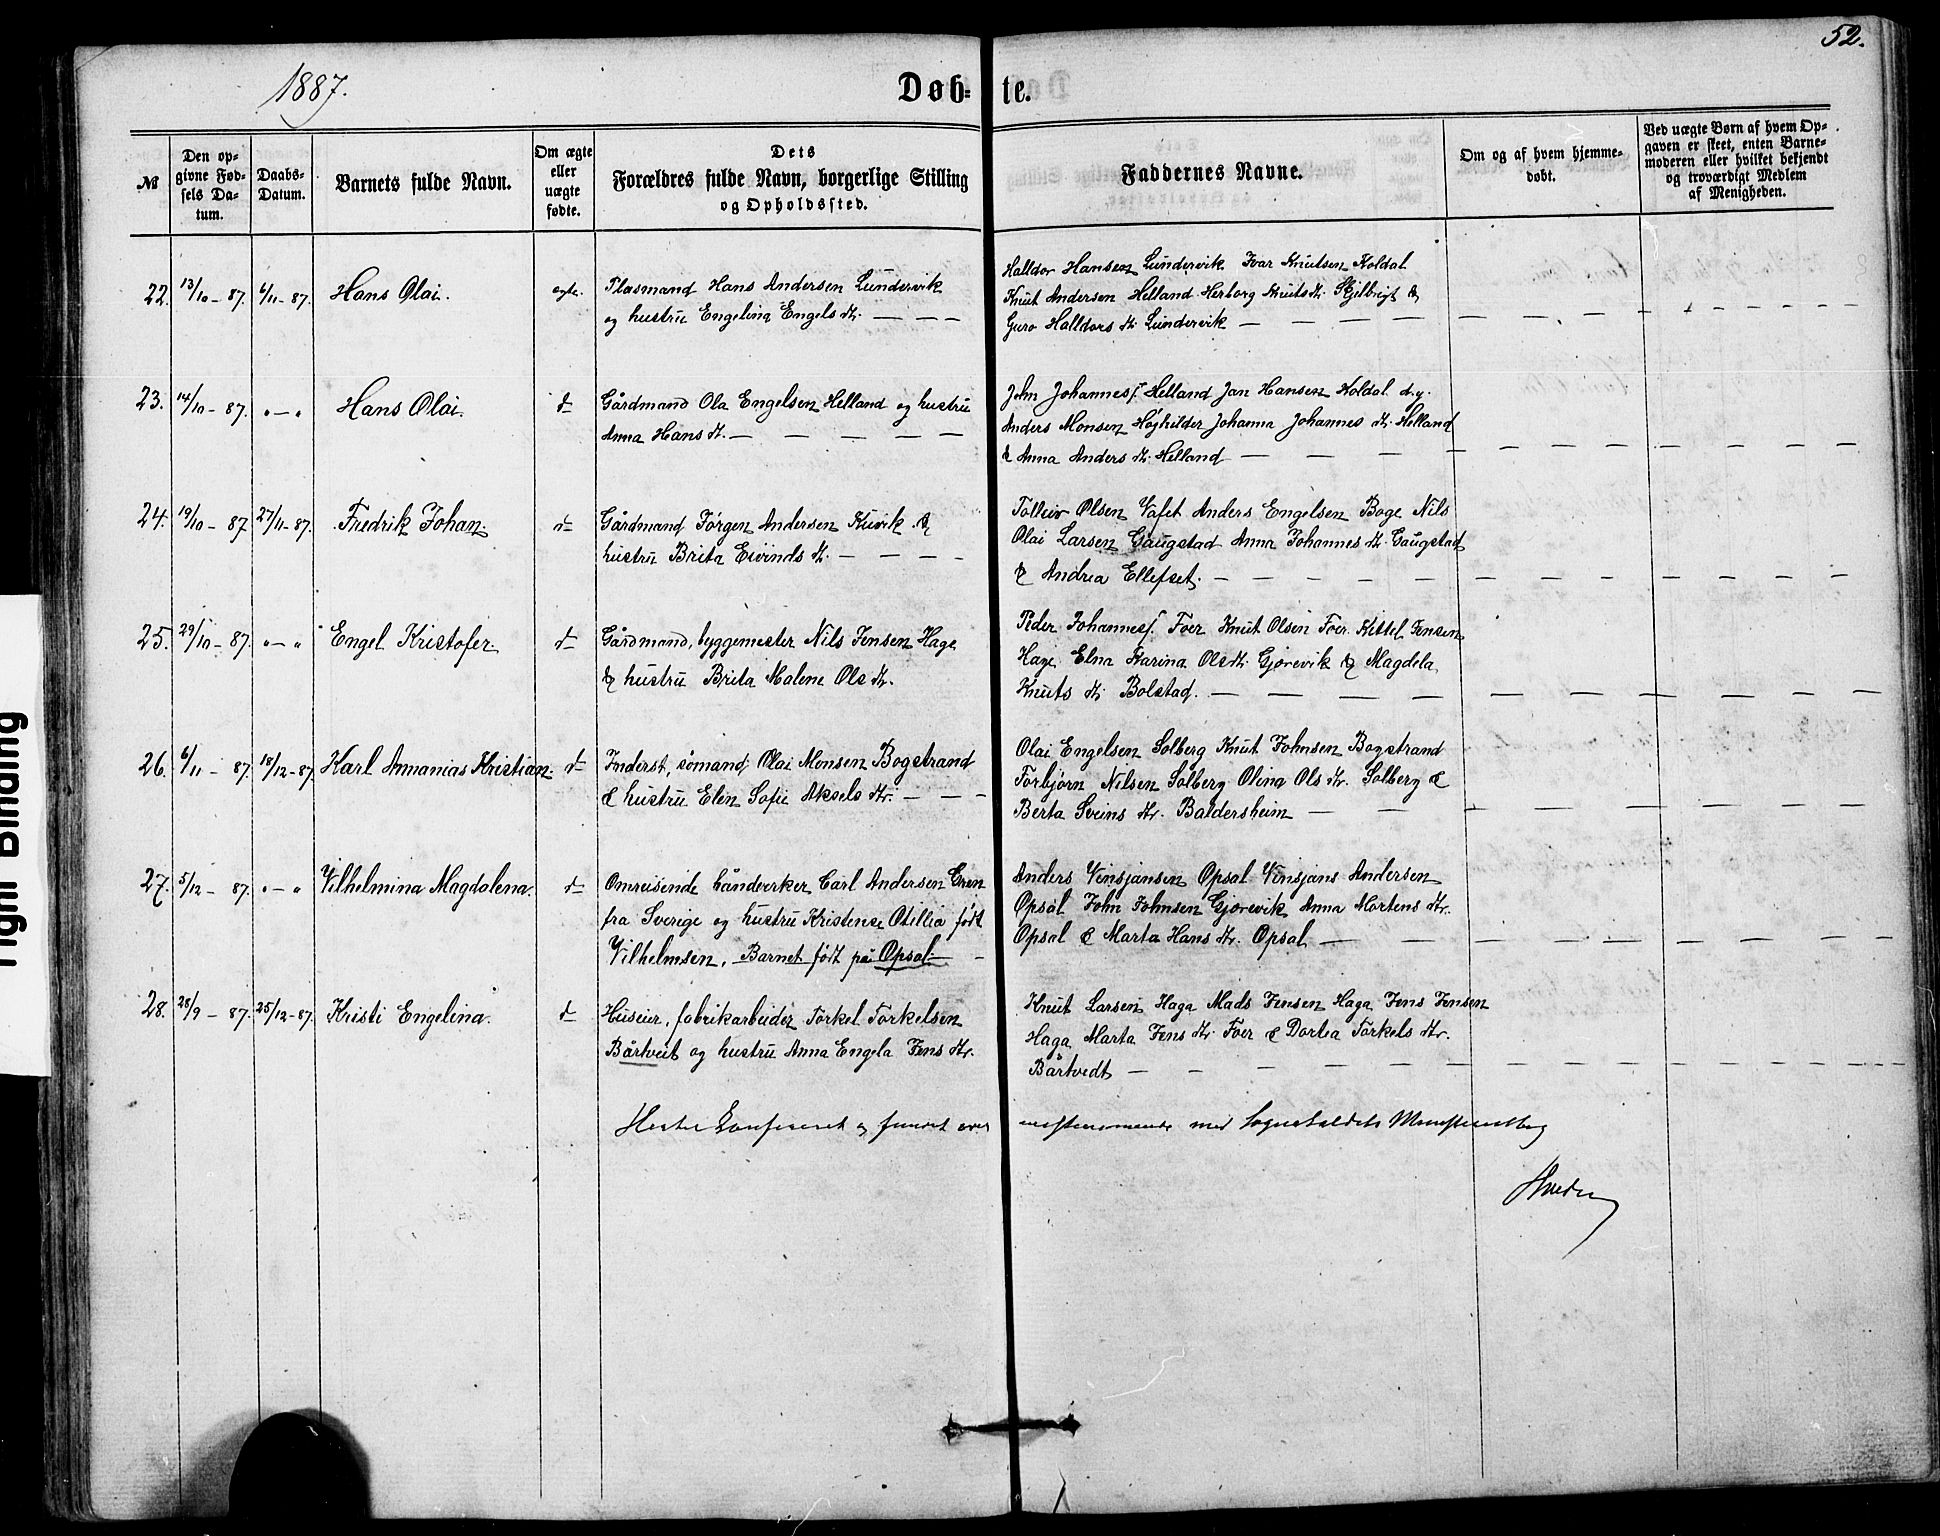 52.
1887.
Døb= te.
№
Den op=
givne Fød=
sels Da=
tum.
Daabs=
Datum.
Barnets fulde Navn.
Om ægte
eller
uægte
fødte.
Dets
Forældres fulde Navn, borgerlige Stilling
og Opholdssted.
Faddernes Navne.
Om og af hvem hjemme=
døbt.
Ved uægte Børn af hvem Op=
gaven er skeet, enten Barne=
moderen eller hvilket bekjendt
og troværdigt Medlem
af Menigheden.
22. 13/10 - 87. 6/11 - 87. Hans Olai. egte.
Plasmand Hans Andersen Lundervik
og hustru Engelina Engels dtr. — — —
Halldor Hansen Lundervik Ivar Knutsen Koldal
Knut Andersen Helland Herborg Knuts dtr. Skjelbreit &
Guro Halldors dtr. Lundervik — — — —
23. 14/10 - 87. „ — „ Hans Olai. do
Gårdmand Ola Engelsen Helland og hustru
Anna Hans dtr. — — — — —
John Johannes f. Helland Jan Hansen Koldal d.y.
Anders Monsen Højhilder Johanna Johannes dtr. Helland
& Anna Anders dtr. Helland — — —
24. 19/10 - 87 27/11 - 87. Fredrik Johan. do
Gårdmand Jørgen Andersen Kuvik &
hustru Brita Eivinds dtr. — — — —
Tolleiv Olsen Vafet Anders Engelsen Boge Nils
Olai Larsen Gaugstad Anna Johannes dtr. Gaugstad
& Andrea Ellefset. — — — —
25. 29/10 - 87. „ — „ Engel Kristofer. do
Gårdmand, byggemester Nils Jensen Hage
& hustru Brita Malene Ols dtr.
Peder Johannes f. Foer Knut Olsen Foer Kittel Jensen
Hage Elna Karina Ols dtr. Gjørevik & Magdela
Knuts dtr. Bolstad. — — — —
26. 6/11 - 87. 18/12 - 87. Karl Annanias Kristian. do
Inderst, sømand Olai Monsen Bogstrand
& hustru Elen Sofie Aksels dtr. — — —
Olai Engelsen Solberg Knut Johnsen Bogstrand
Torbjørn Nilsen Solberg Olina Ols dtr. Solberg &
Berta Sveins dtr. Baldersheim — —
27. 5/12 - 87. „ — „ Vilhelmina Magdalena. do
Omreisende håndverker Carl Andersen Gren
fra Sverige og hustru Kristense Otillia født
Vilhelmsen. Barnet født på Opsal. —
Anders Vinsjansen Opsal Vinsjans Andersen
Opsal John Johnsen Gjørevik Anna Mortens dtr.
Opsal & Marta Hans dtr. Opsal — — —
28. 28/9 - 87. 25/12 - 87. Kristi Engelina. do
Huseier, fabrikarbeider Torkel Torkelsen
Bårtveit og hustru Anna Engela Jens dtr.
Knut Larsen Haga Mads Jensen Haga Jens Jensen
Haga Marta Jens dtr. Foer & Dortea Torkels dtr.
Bårtvedt — — — — —
og med Sognekaldets
Tight Binding